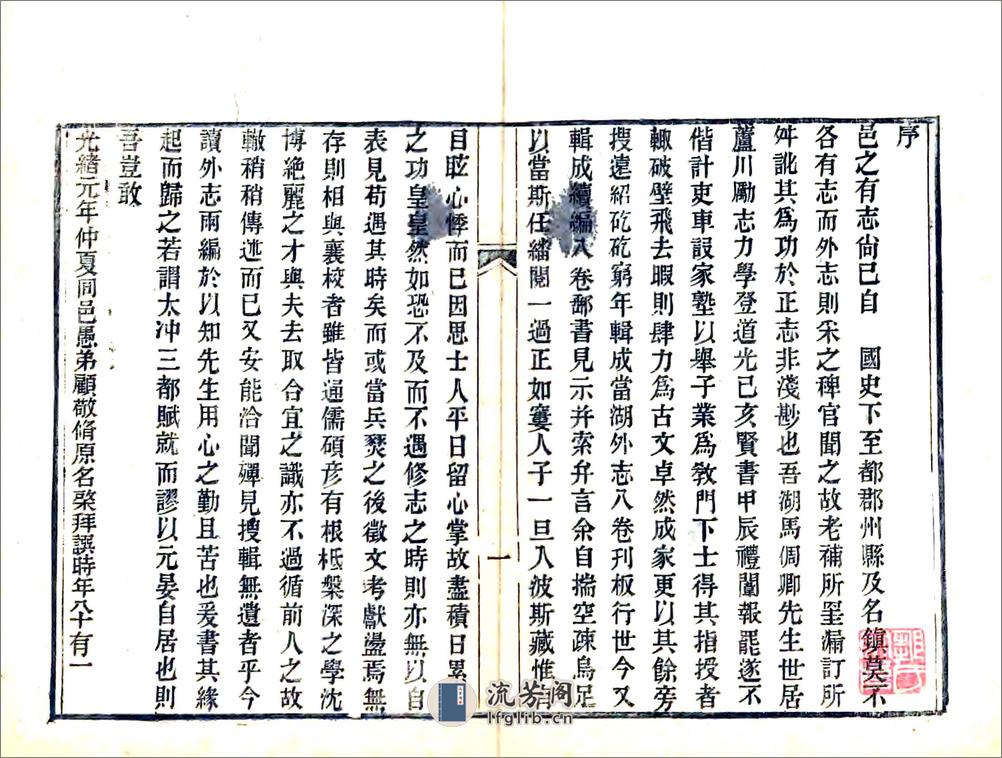 序
邑之有志尙已自　國史下至都郡州縣及名鎮莫不
各有志而外志則采之稗官聞之故老補所罣漏訂所
舛訛其爲功於正志非淺尠也吾湖馬侗卿先生世居
蘆川勵志力學登道光己亥賢書甲辰禮闈報罷遂不
偕計吏車設家塾以舉子業爲敎門下士得其指授者
輙破壁飛去暇則肆力爲古文卓然成家更以其餘旁
搜遠紹矻矻窮年輯成當湖外志八卷刊板行世今又
輯成續編八卷郵書見示并索弁言余自揣空疎烏足
以當斯任繙閱一過正如窶人子一旦入波斯藏惟有
目眩心悸而已因思士人平日留心掌故盡積日累
之功皇皇然如恐不及而不遇修志之時則亦無以自
表見苟遇其時矣而或當兵燹之後徵文考獻盪焉無
存則相與襄校者雖皆通儒碩彦有根柢槃深之學沈
博絶麗之才與夫去取合宜之識亦不過循前人之故
轍稍稍傳述而已又安能洽聞殫見搜輯無遺者乎今
讀外志兩編於以知先生用心之勤且苦也爰書其緣
起而歸之若謂太冲三都賦就而謬以元晏自居也則
吾豈敢
光緖元年仲夏同邑愚弟顧敬脩原名榮拜譔時年八十有一
一
流芳阁
lfglib.cn